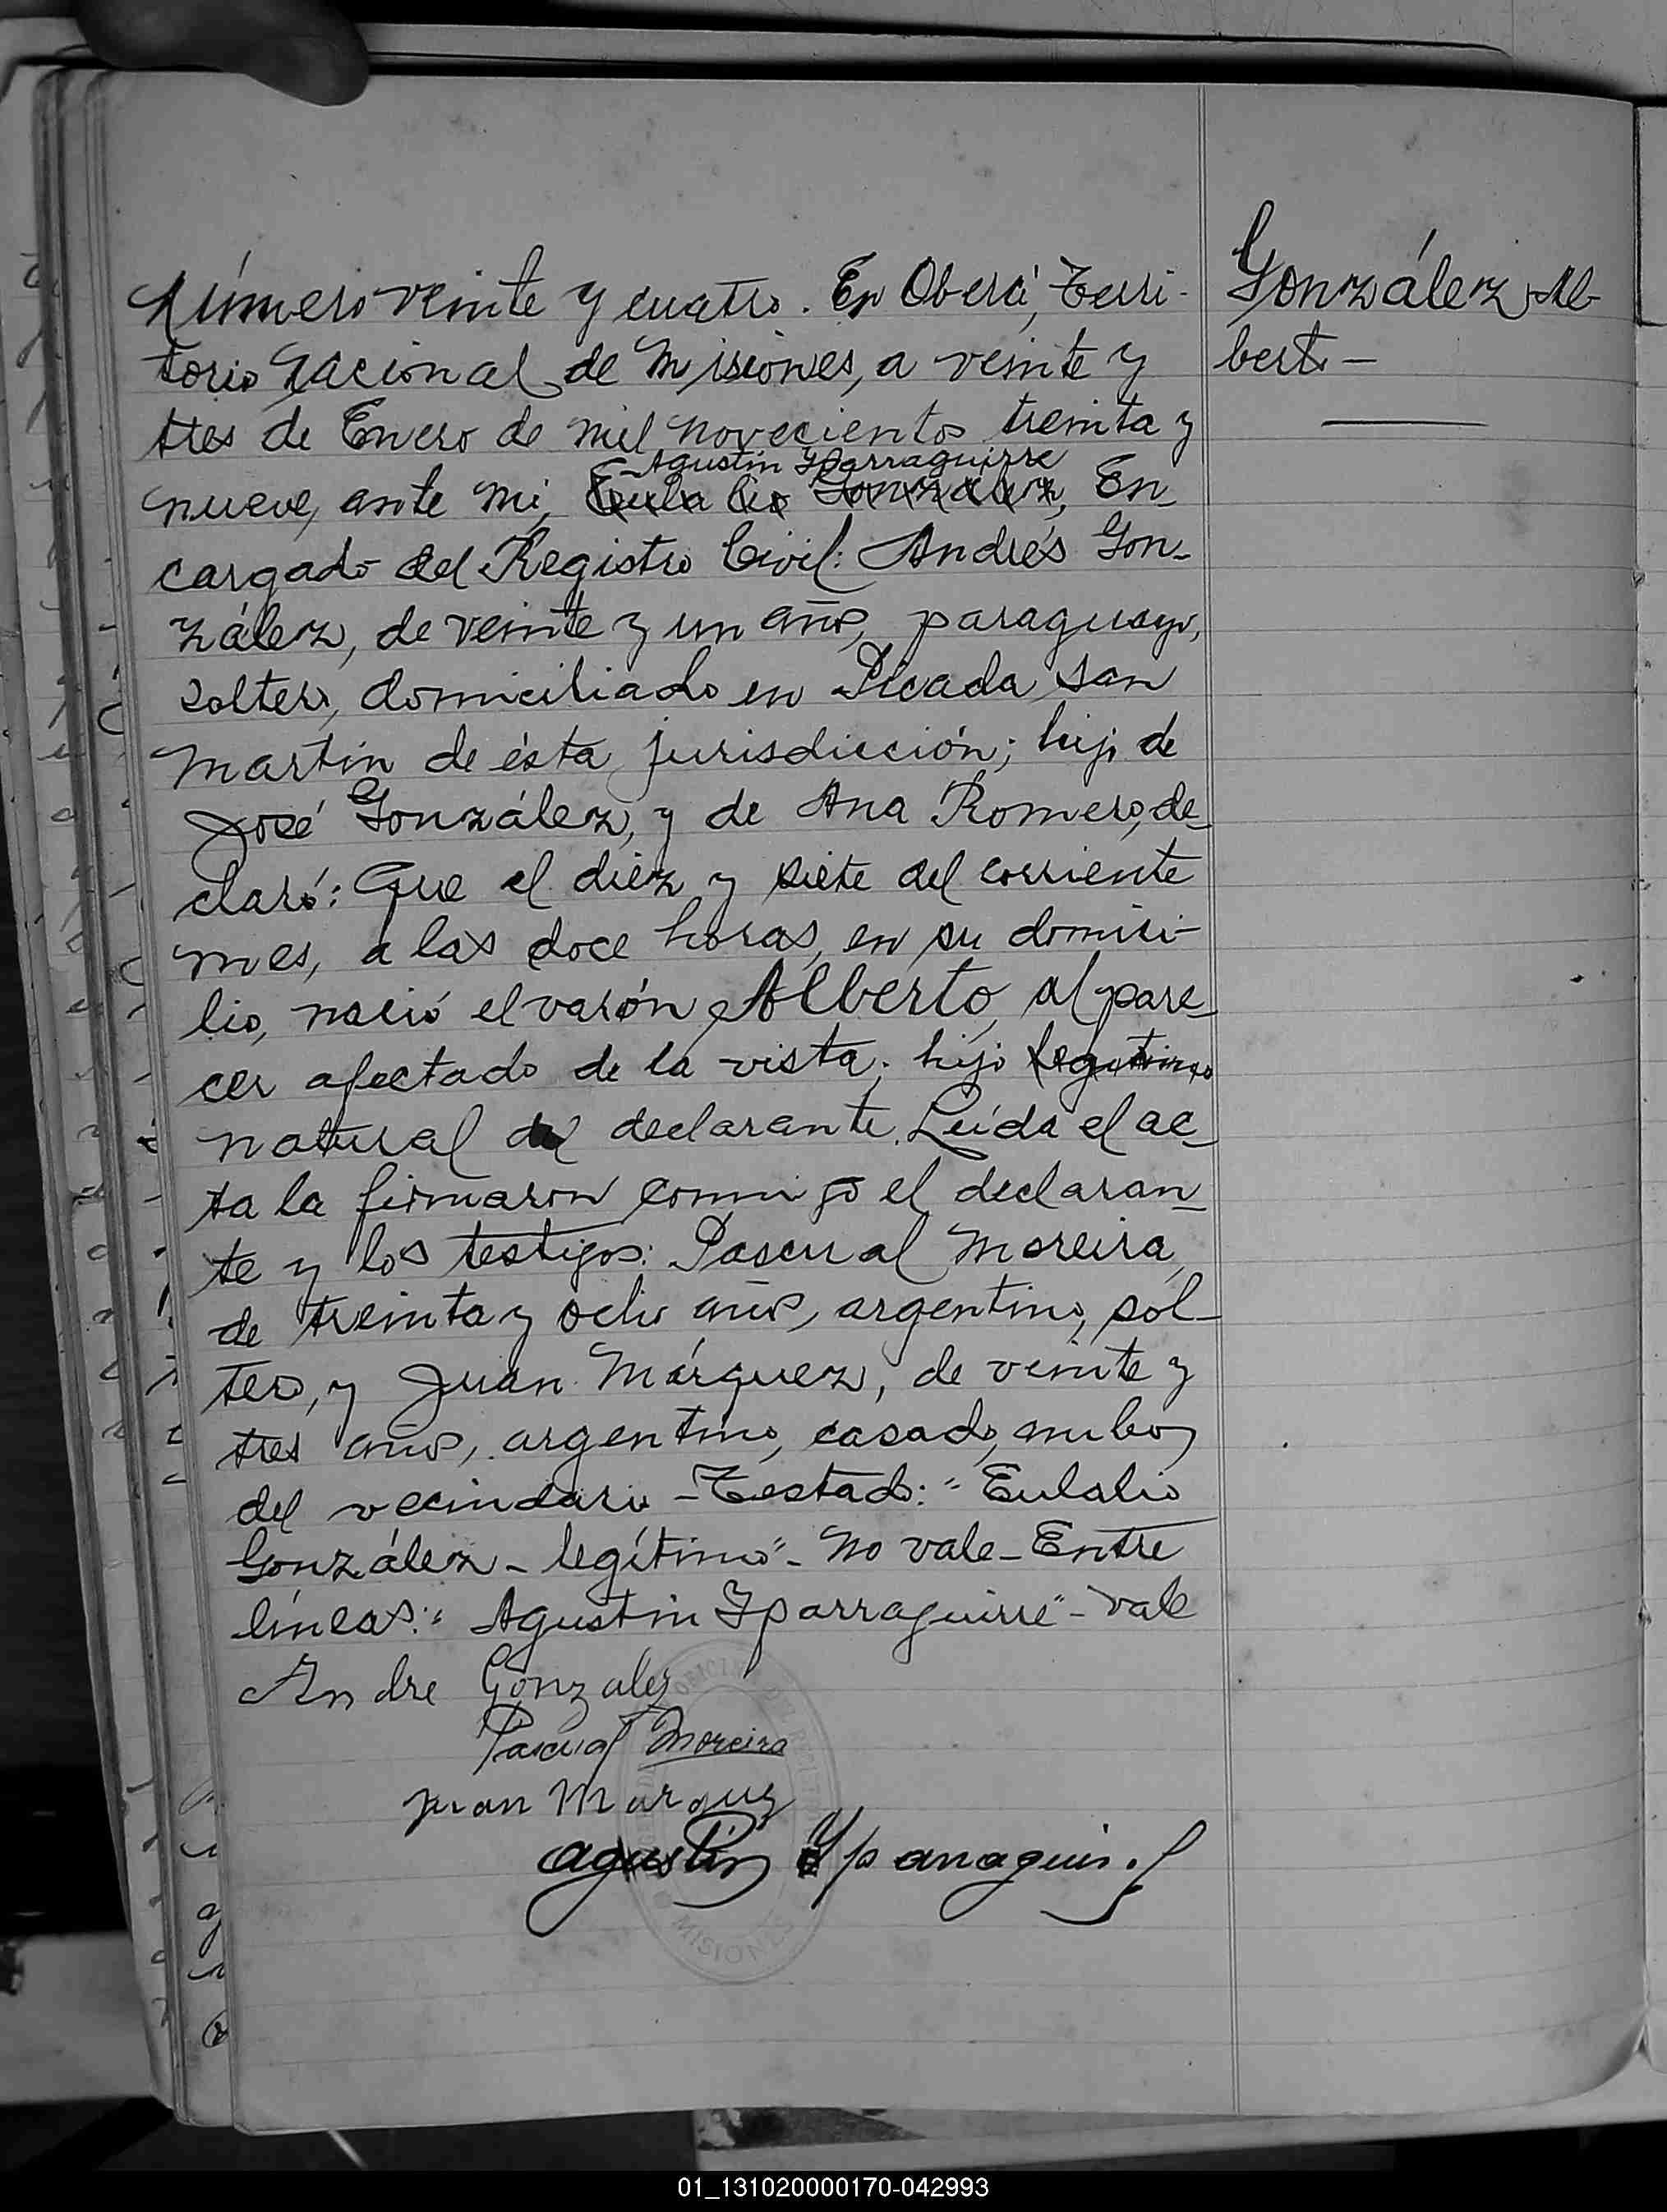 Número veinte y cuatro. En Oberá, Terri-
torio Nacional de Misiones, a veinte y
tres de Enero de mil novecientos treinta y
Agustín Yparraguirre
nueve, ante mi, Eulalio González, En
cargado del Registro Civil: Andrés Gon-
zález, de veinte y un años, paraguayo,
soltero, domiciliado en Picada San
Martín de ésta jurisdicción; hijo de
José González, y de Ana Romero, de-
claró: Que el diez y siete del corriente
mes, a las doce horas, en su domici-
lio, nació el varón Alberto, al pare-
cer afectado de la vista; hijo legítimo
natural del declarante. Leída el ac-
ta la firmaron conmigo el declaran-
te y los testigos: Pascual Moreira,
de treinta y ocho años, argentino, sol-
tero, y Juan Márquez, de veinte y
tres años, argentino, casado, ambos
del vecindario - Testado: "Eulalio
González - legítimo" - No vale - Entre
líneas: "Agustín Yparraguirre" - Vale
Andre Gonzalez
Pascual Moreira
Juan Marquez
Agustin Yparraguirre
González Al-
berto -
MISIONES
01_131020000170-042993